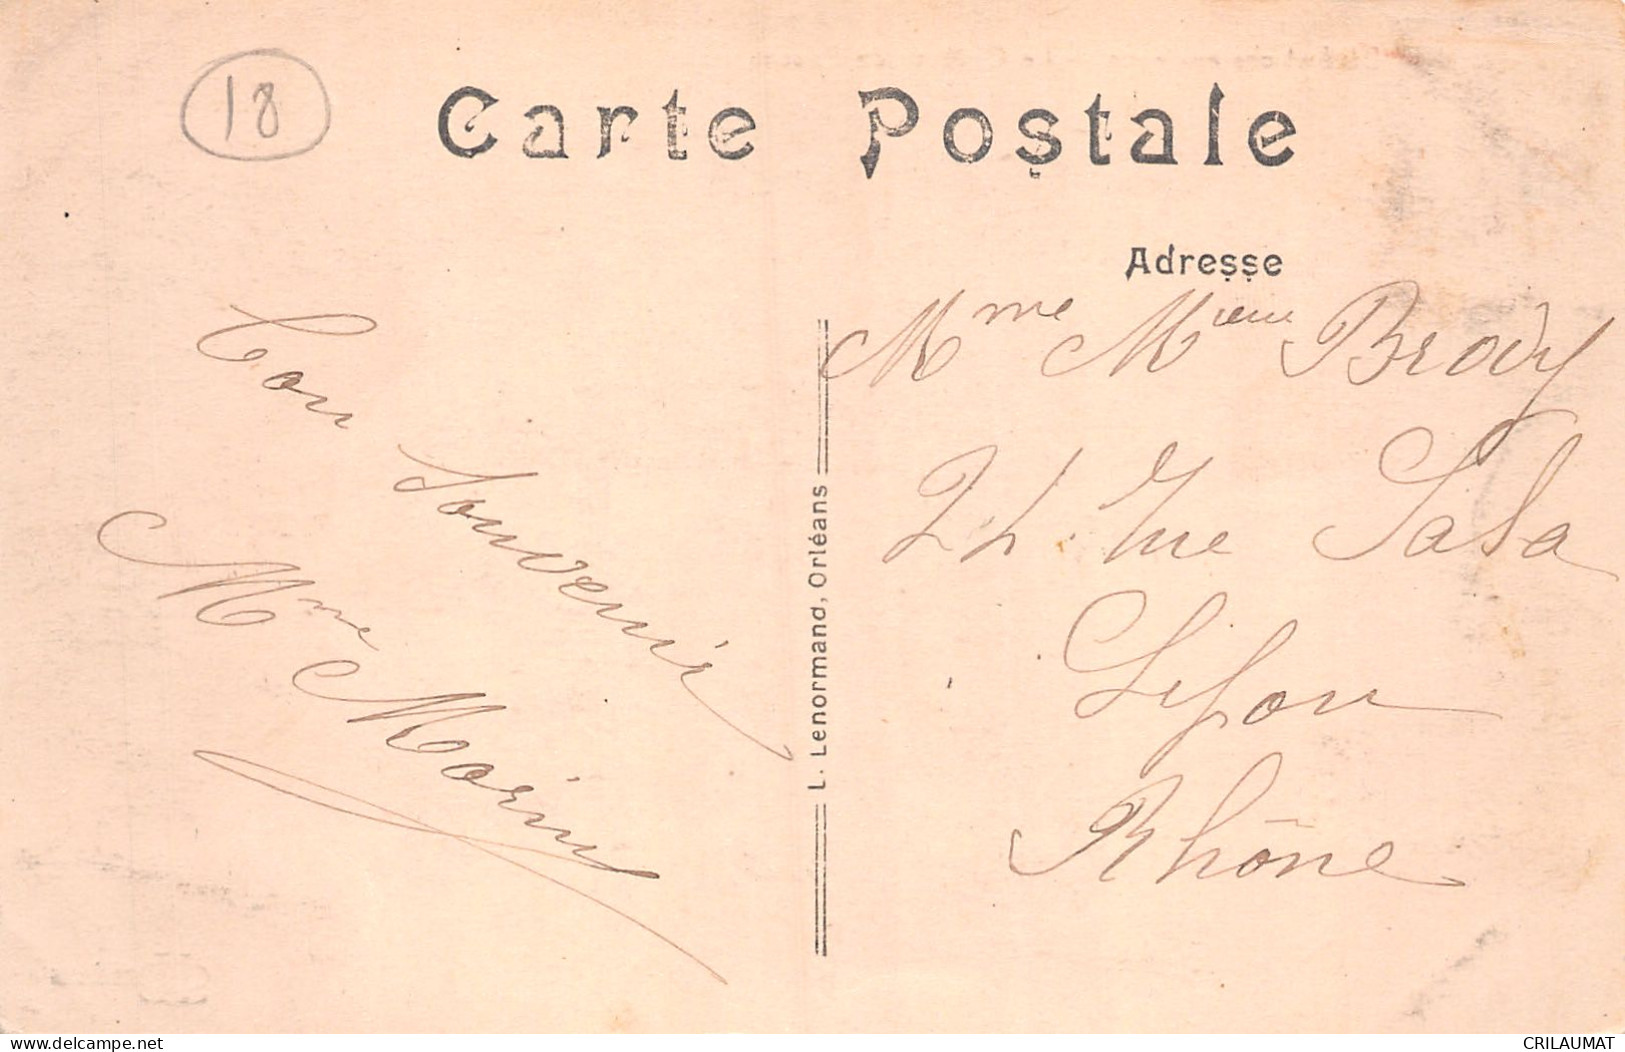 18
Carte Postale
Adresse
Bon Souvenir
Mme Morin
L. Lenormand, Orléans
Mme M Brody
24 rue Sala
Lyon
Rhône
CRILAUMAT